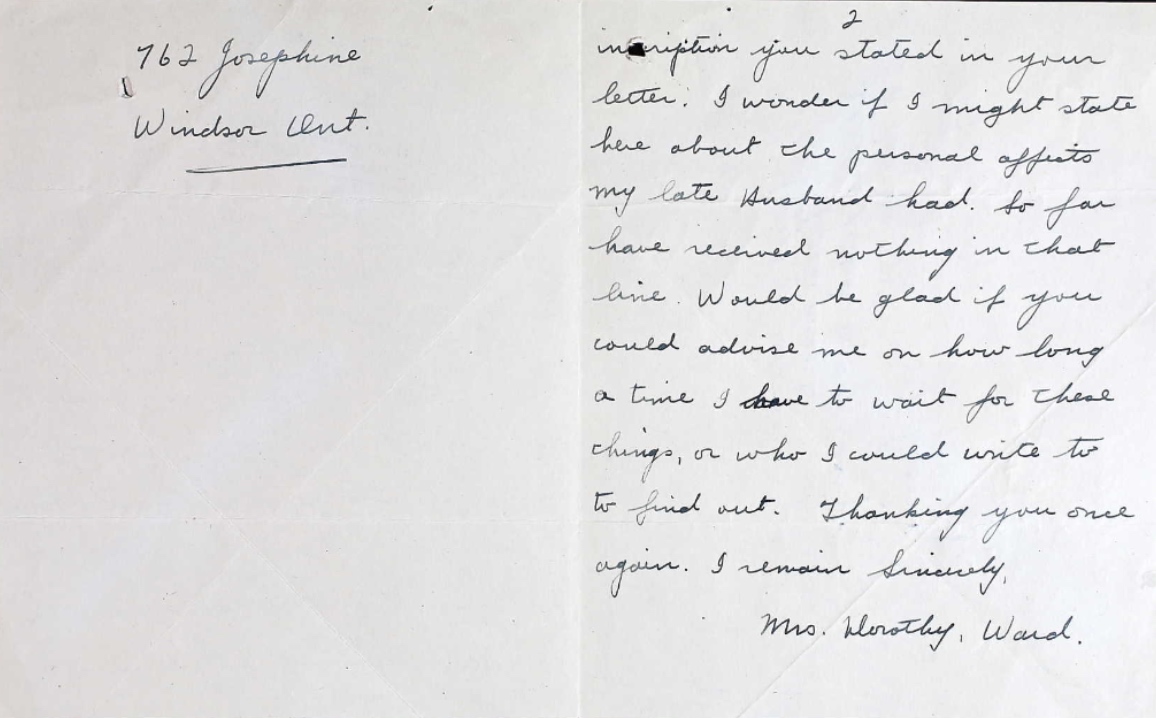 762 Josephine
Windsor Ont.
2
inscription you stated in your
letter. I wonder if I might state
here about the personal affects
my late Husband had. So far
have received nothing in that
line. Would be glad if you
could advise me on how long
a time I have to wait for these
things, or who I could write to
to find out. Thanking you once
again. I remain Sincerely,
Mrs. Dorothy, Ward.